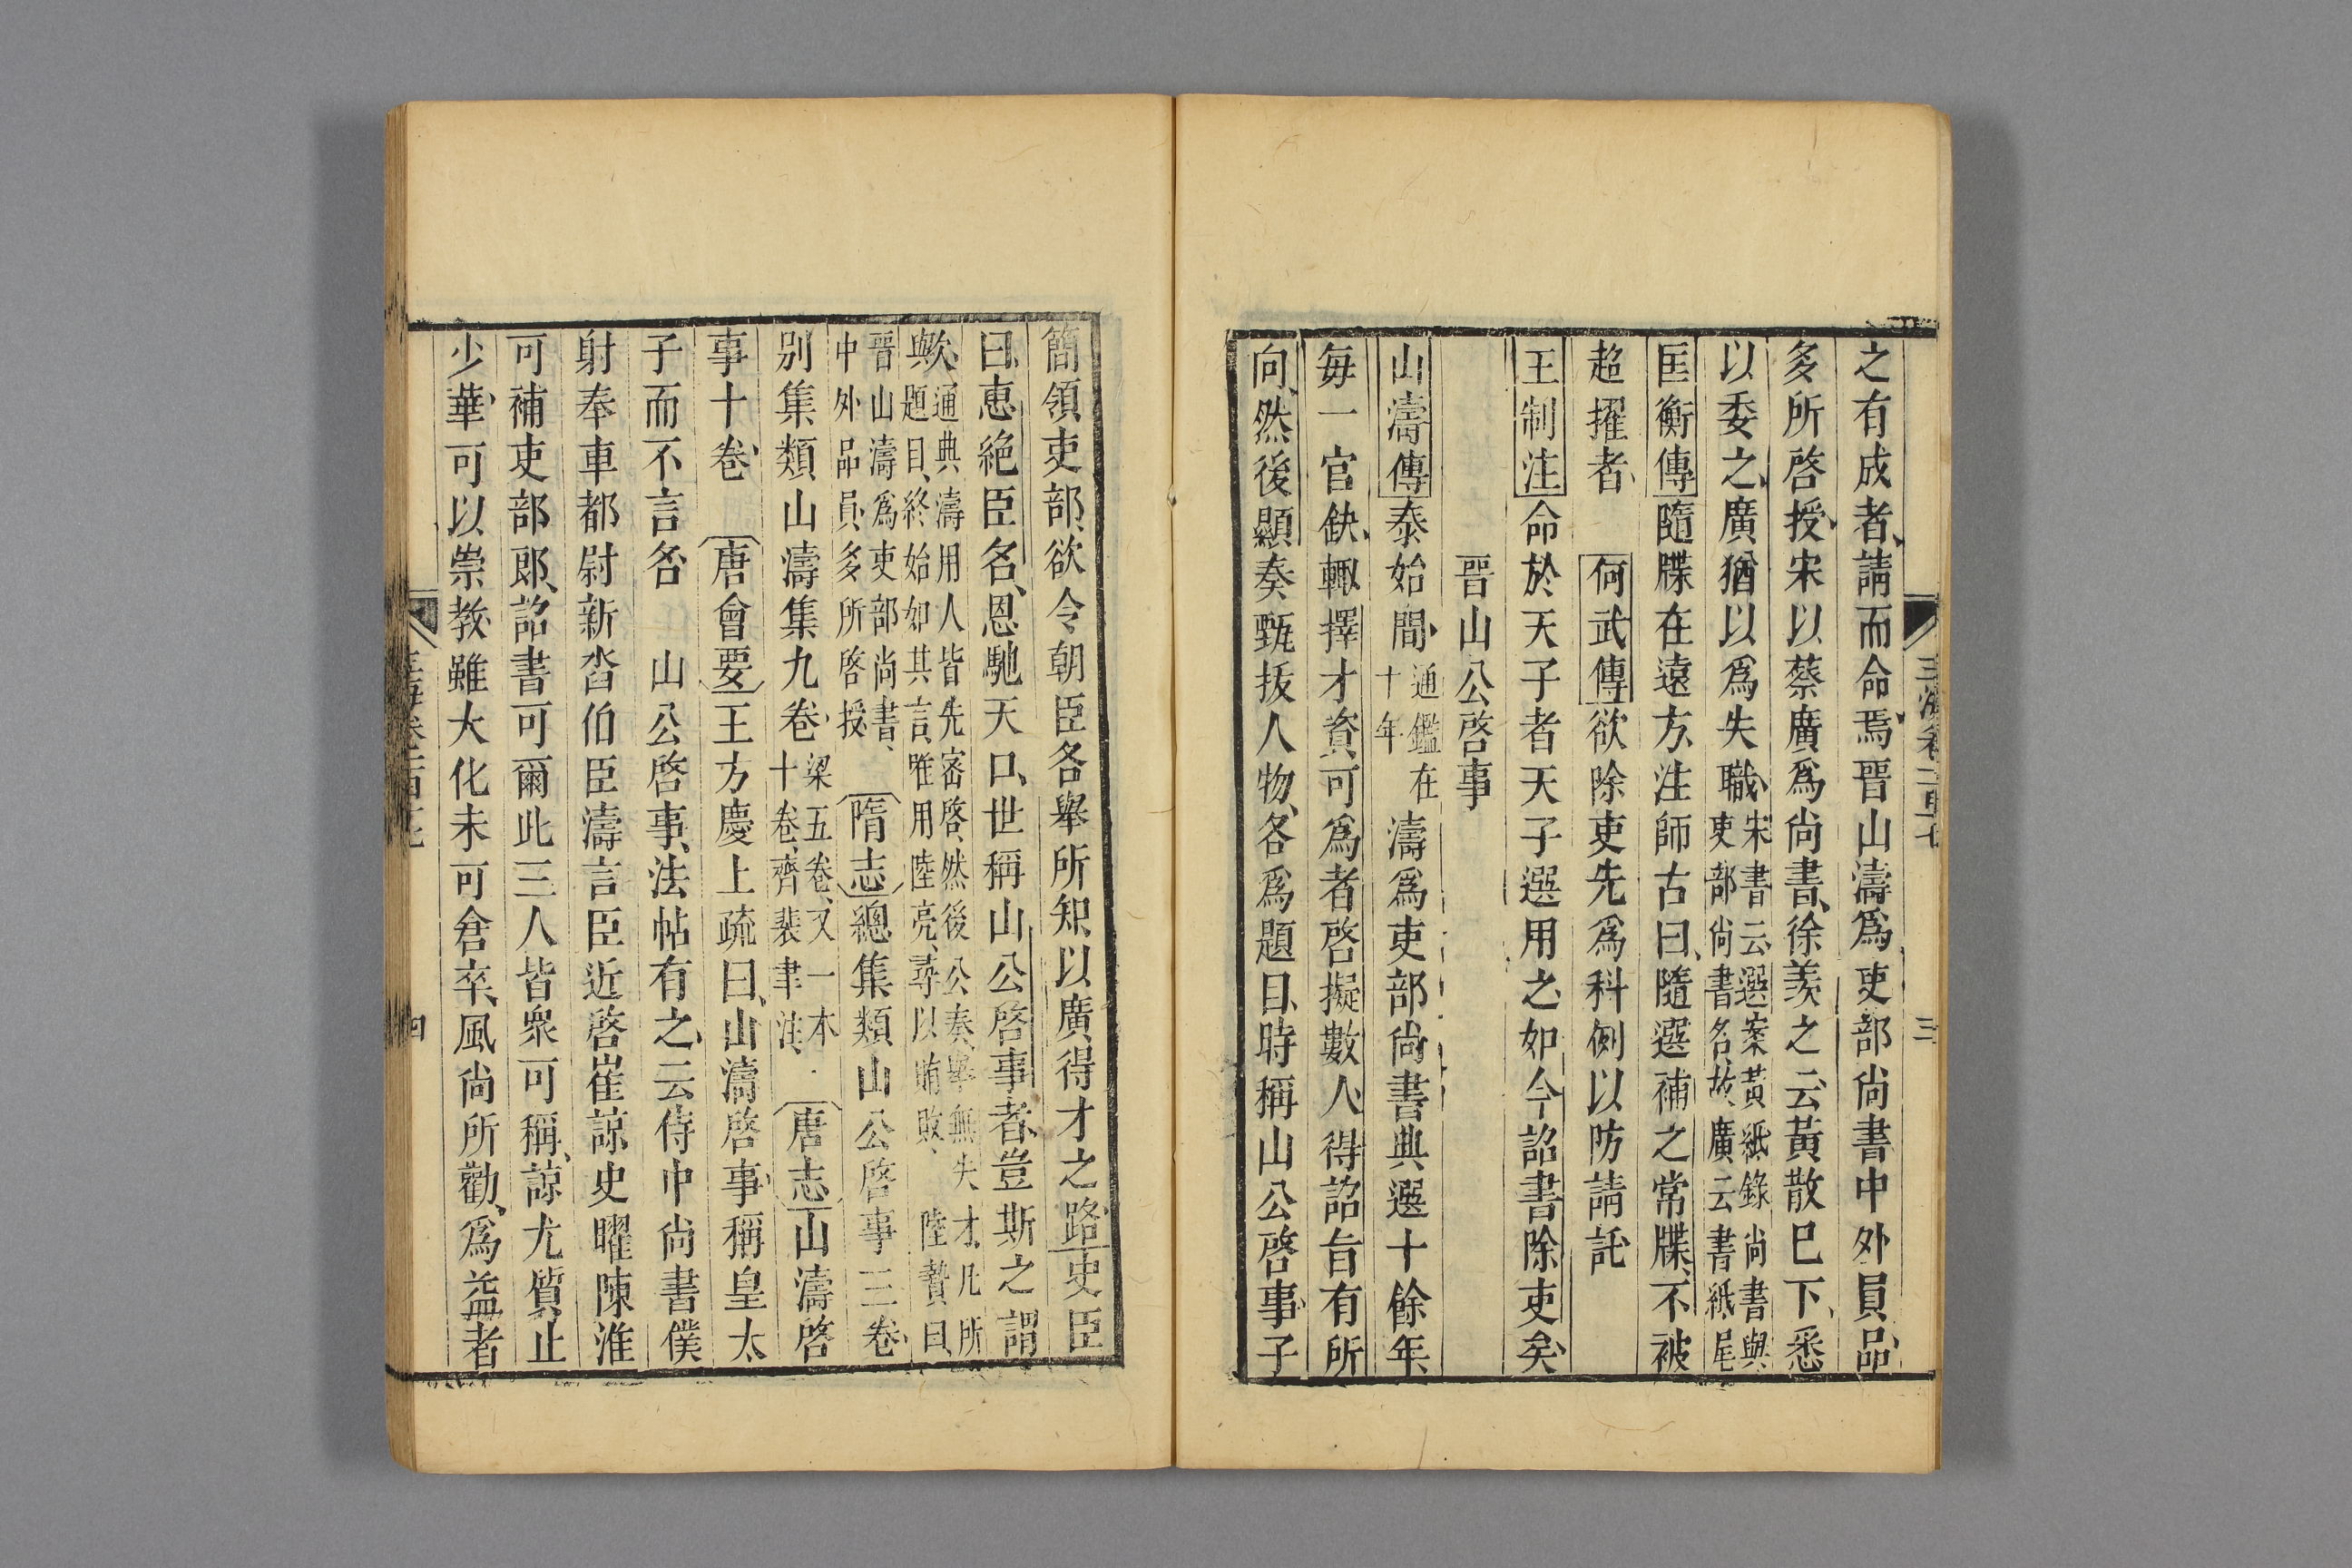 之有成者請而命焉晉山濤爲吏部尚書中外員品
多所啓授宋以蔡廣爲尚書徐羨之云黃散巳下悉
以委之廣猶以爲失職宋書云選案黃紙錄尚書與吏部尚書名故廣云書紙尾
匡衡傳隨牒在遠方注師古曰隨選補之常牒不被
超擢者 何武傳欲除吏先爲科例以防請託
王制注命於天子者天子選用之如今詔書除吏矣
晉山公啓事
山濤傳泰始間通鑑在十年濤爲吏部尚書典選十餘年
每一官缺輒擇才資可爲者啓擬數人得詔旨有所
向然後顯奏甄拔人物各爲題目時稱山公啓事子
簡領吏部欲令朝臣各舉所知以廣得才之路史臣
曰惠絶臣名恩馳天口世稱山公啓事者豈斯之謂
歟通典濤用人皆先密啓然後公奏舉無失才凡所題目終始如其言唯用陸亮尋以賄敗 陸贄曰
晉山濤爲吏部尚書中外品員多所啓授 隋志總集類山公啓事三卷
别集類山濤集九卷梁五卷又一本十卷齊裴聿注 唐志山濤啓
事十卷 唐會要王方慶上疏曰山濤啓事稱皇太
子而不言名 山公啓事法帖有之云侍中尚書僕
射奉車都尉新沓伯臣濤言臣近啓崔諒史曜陳淮
可補吏部郎詔書可爾此三人皆衆可稱諒尤質止
少華可以崇教雖大化未可倉卒風尚所勸爲益者